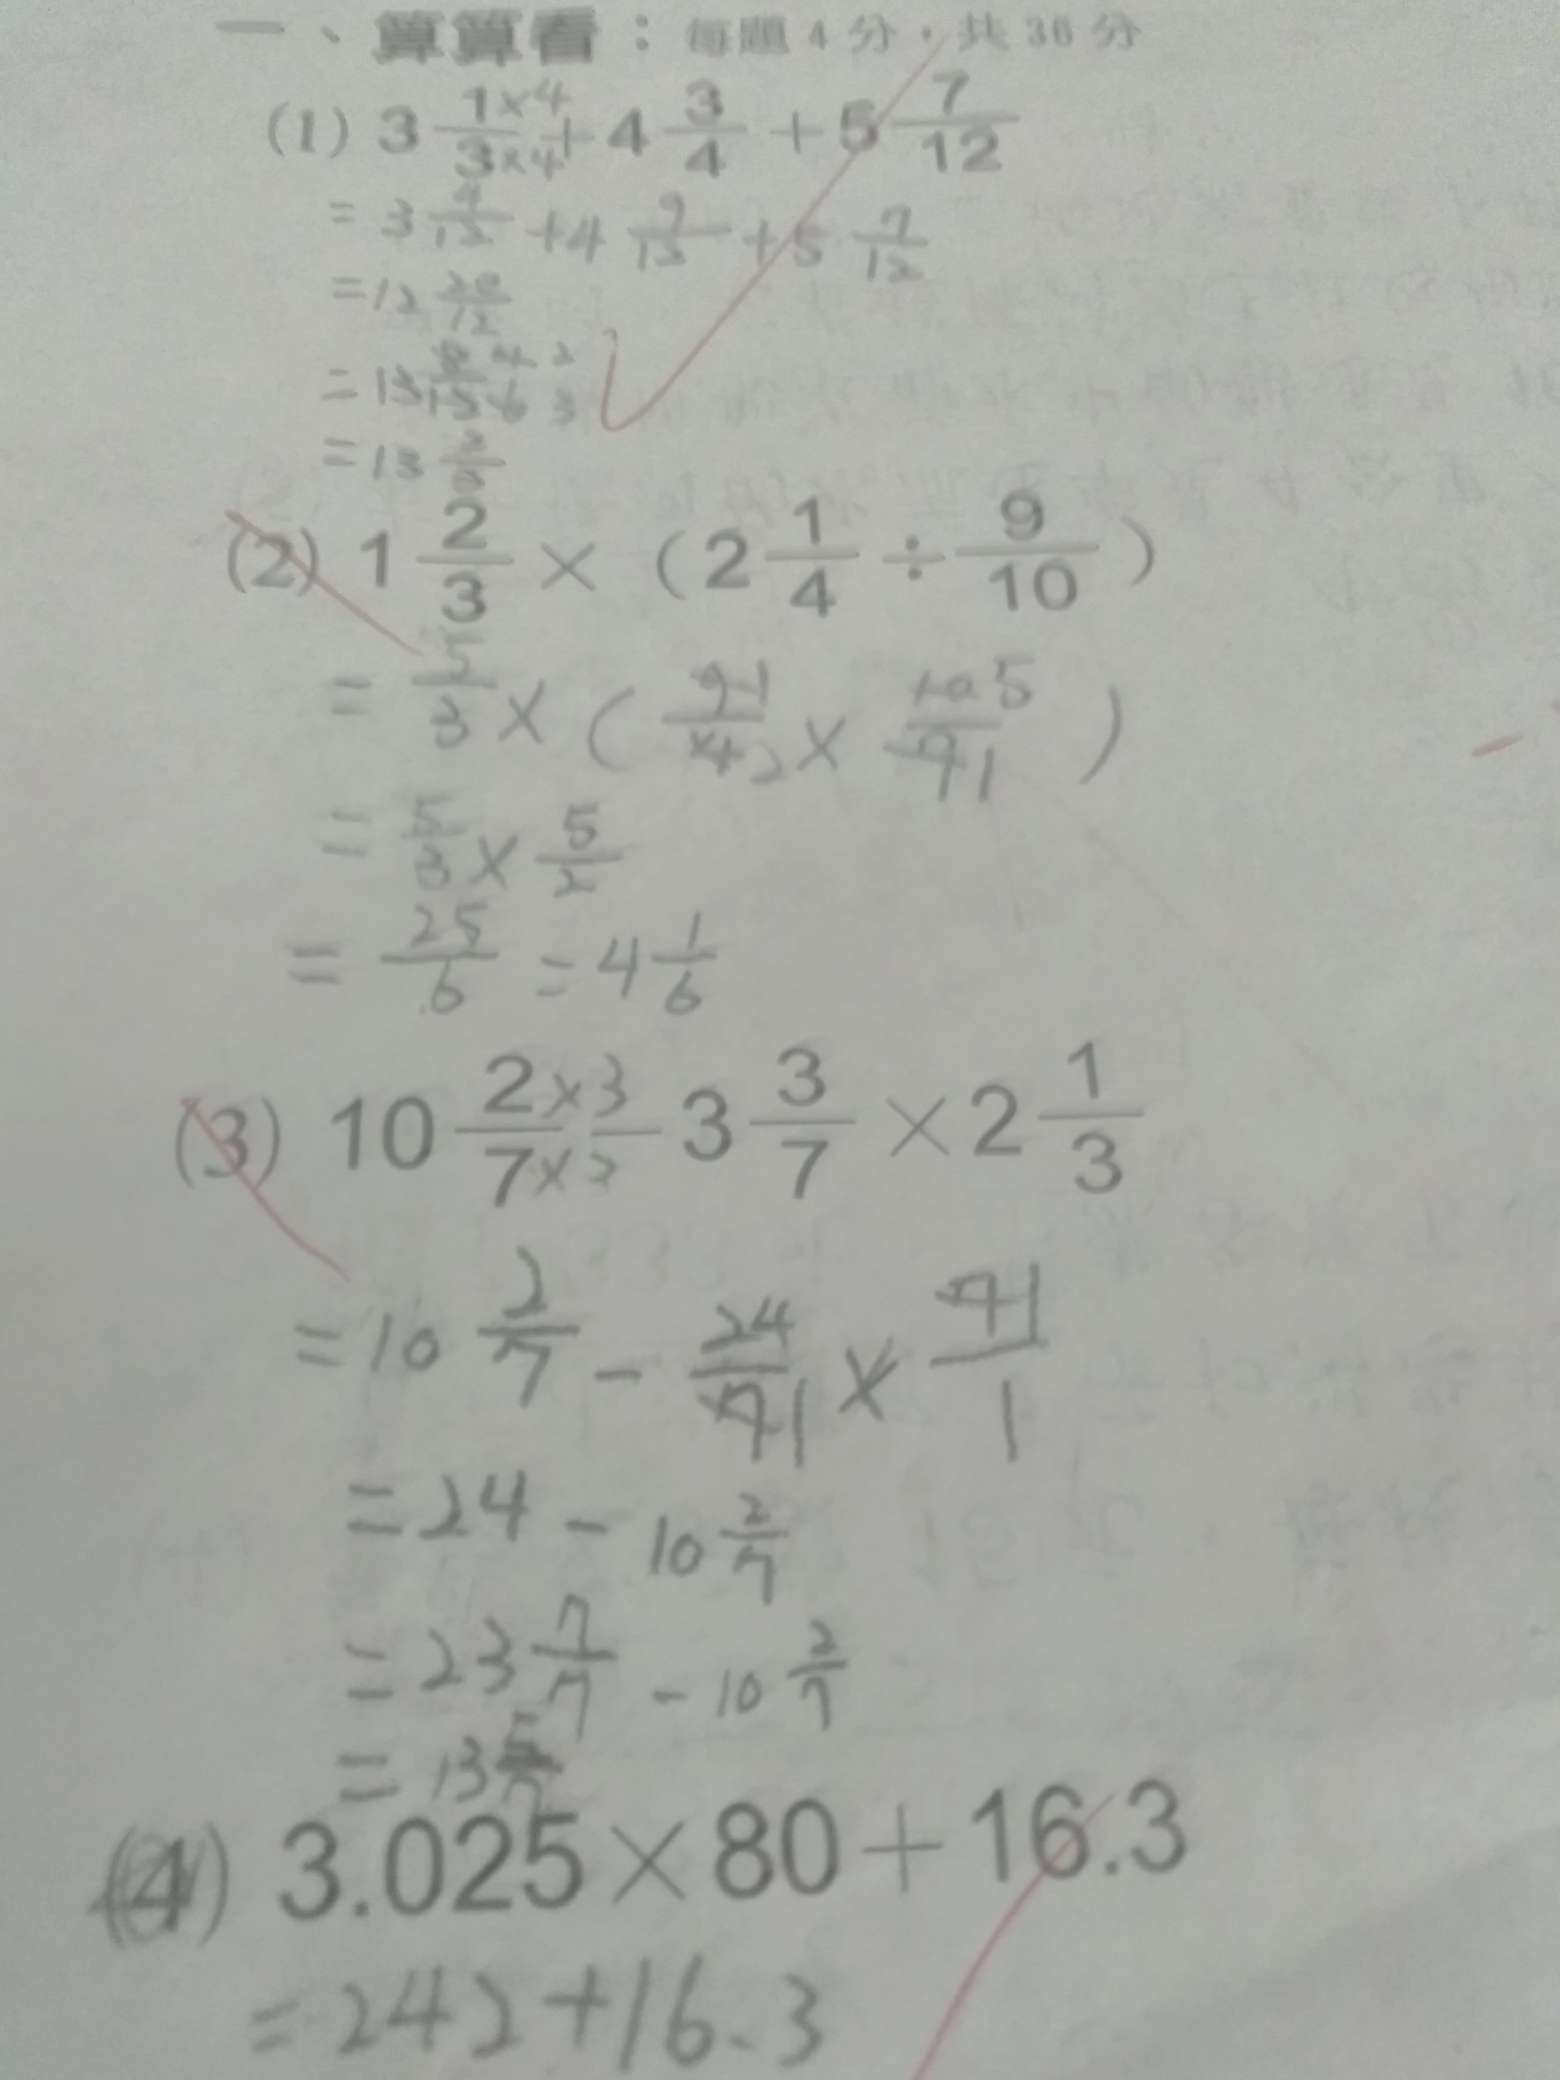 一、算算看：每題4分，共36分
(1) 3 1×4/3×4 + 4 3/4 + 5 7/12
= 3 4/12 + 4 9/12 + 5 7/12
= 12 20/12
= 13 8/12 4/6 2/3
= 13 2/3
(2) 1 2/3 × (2 1/4 ÷ 9/10)
= 5/3 × (9 1/4 2 × 10 5/9 1)
= 5/3 × 5/2
= 25/6 = 4 1/6
(3) 10 2×3/7× − 3 3/7 × 2 1/3
= 10 2/7 − 24/7 1 × 7 1/1
= 24 − 10 2/7
= 23 7/7 − 10 2/7
= 13 5/7
(4) 3.025×80+16.3
= 242+16.3